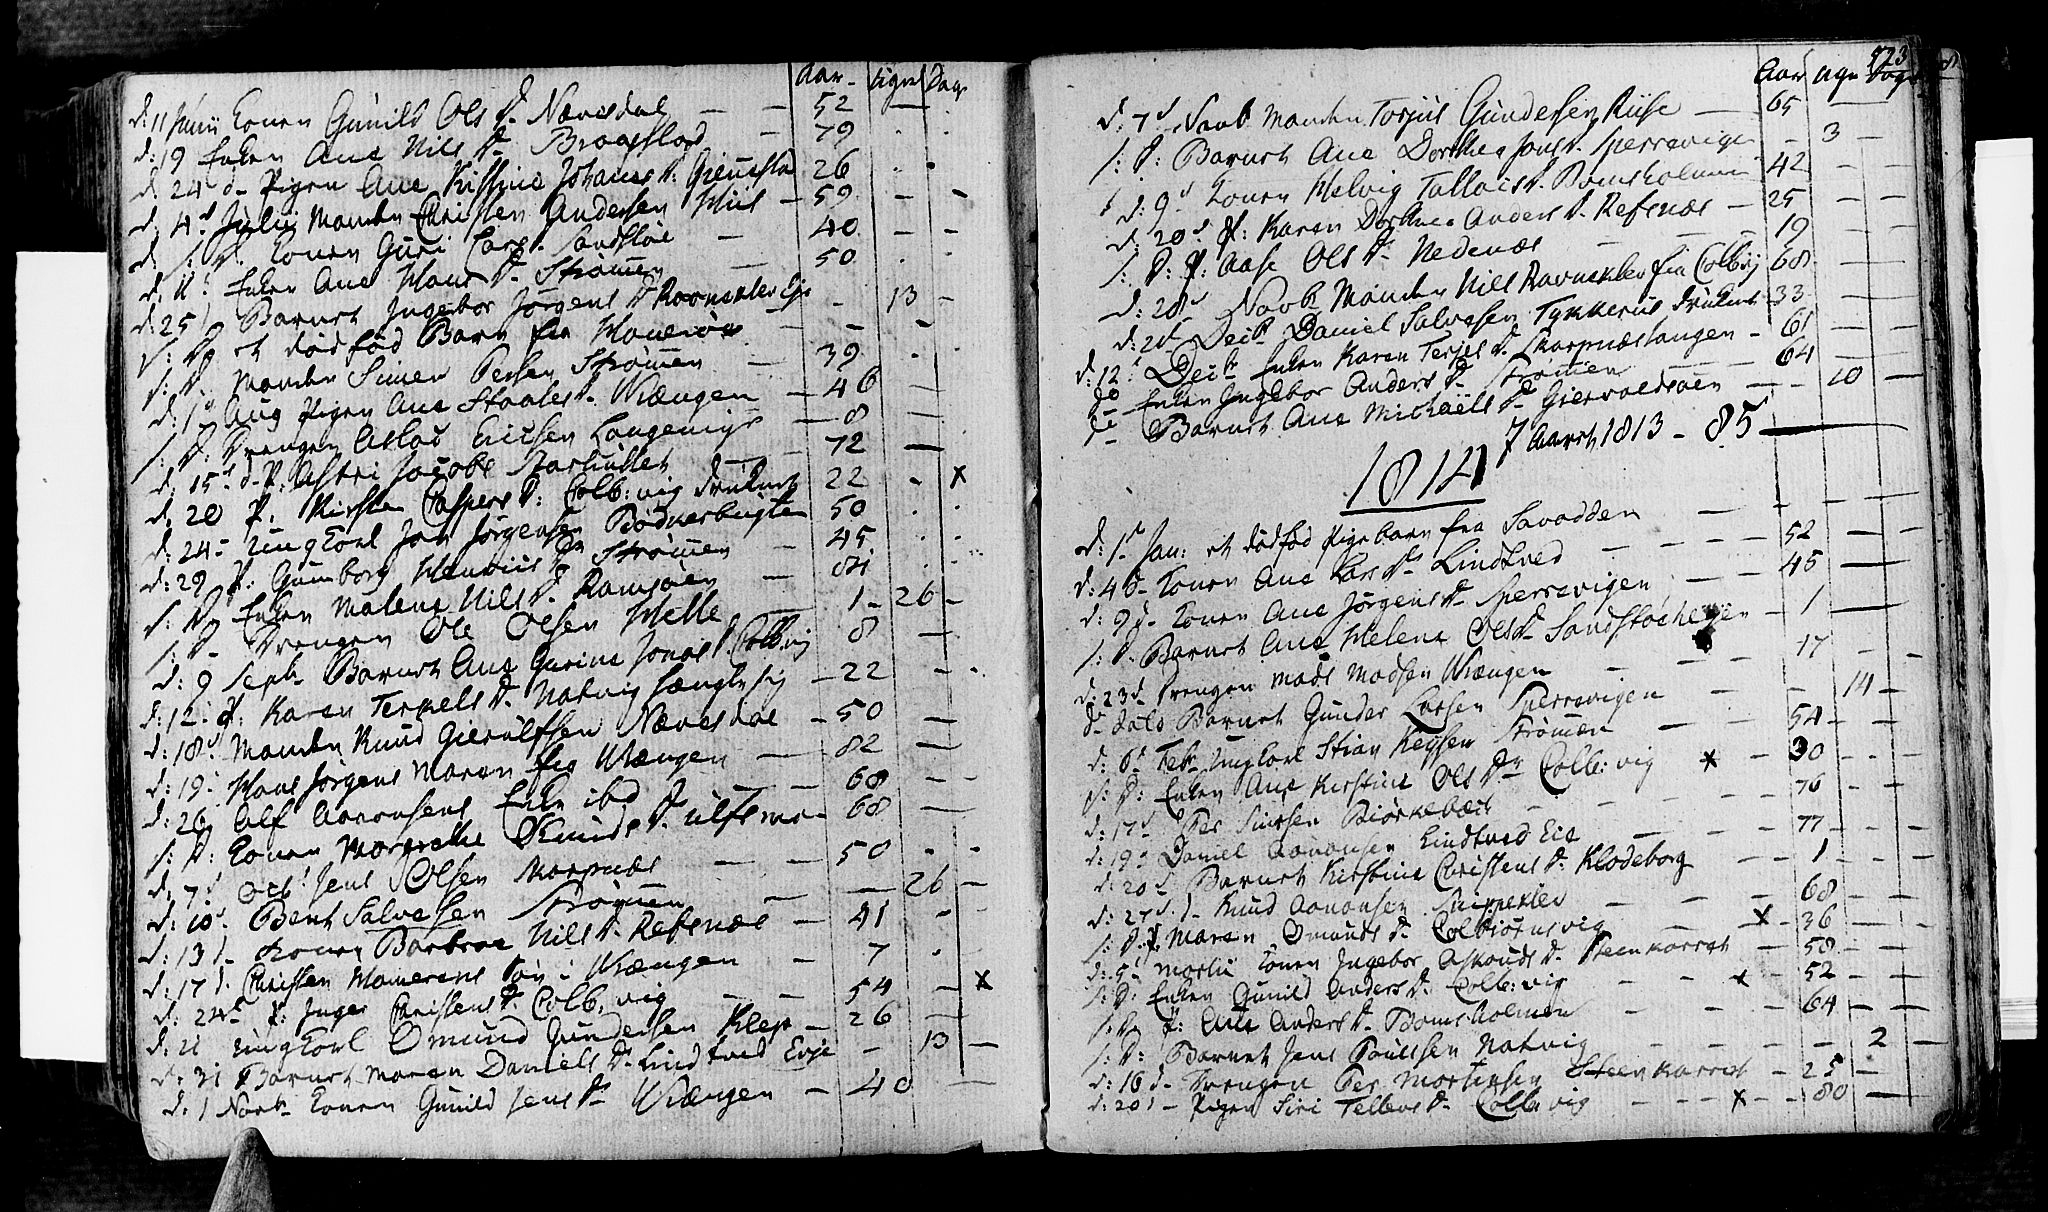 Aar - Ugner Dage
d: 11 Junii Konen Gunild Ols D. Næresdal — — 52 —
d: 19 Enken Ane Nils D. Braastad - 79
d. 24 d - Pigen Ane Kistine Johanes D: Gieuestad 26
d. 4d Julii Manden Christen Andersen Huus - 59 - -
d /: d. Konen Guri Lars D. Sandstøe — 40 - -
d. 11 Enken Ane Hans D. Strømen — 50
d: 25 Barnet Ingebor Jørgens D Ravnekley Eje - 13 -
/: D et dødfød Barn fra Haverøe - - -
/: D. Manden Simen Persen Strømen — 39
d: 1d Aug Pigen Ane Staales D. Vrængen - 46 -
/: D: Drengen Aslad Ericsen Longenige — 8 —
d. 15d d - P. Astri Jacobs 72 —
d. 20 P. Kirsten Caspers D: Colb:vig druknet 22 - x
d: 24 - Ungkarl Joh Jørgensen Bødkerbugten 50
d: 29 P: Gunborg Hendrics D. Strømen - 45
/: D Enken Malene Nils D. Ramsøen — 84
/: D - Drengen Ole Olsen Helle — 1 - 26 -
d: 9 Sept. Barnet Ane Gurine Jonas D. Colb:vig 8 —
d: 12. P: Karen Terkels D. Natvig hængte sig - 22 -
d: 18d Manden Knud Gierulfsen Næresdal - 50 —
d: 19. Hans Jørgens Maren fra Vrængen — 82 —
d: 26 Alf Aanonsens Enke ibd — 68 -
/: D: Konen Margrethe Osmunds D. - 68 —
d: 7d Octbr Jens Olsen Skarpnæs — — 50
d: 10d Bent Salvesen Strømen — — 26 —
d: 13 d - Konen Barbroe Nils D. Refsnæs - 41 -
d: 17 d. Christen Hamerens søn i Vrængen - 7
d: 24d P. Inger Christens D Colb:vig - - 54 - x
d: 21 Ungkarl Omund Gundersen Klep - 26 —
d: 31 Barnet Maren Daniels D. Lindtved Eeje - 13 -
d: 1 Novb - Konen Gunild Jens D - Vrængen - 40 —
523
Aar Ugn Dage
d: 7d Novb Manden Torjus Gundersen Riise — 65 —
/: D: Barnet Ane Dorthea Jons D. Sperrevigen - 3 -
d: 9d Konen Helvig Tallois D. Bomsholmen 42 —
d: 20d P: Karen Dorthea Anders D. Refsnæs - 25 - -
/: D: P: Aase Ols D - Nedenæs - 19
d: 28d Novb Manden Nils Ravneklev fra Colb:vig 68
d: 2d Decb Daniel Salvesen Tykkerüs druknet 33 —
d: 12d Decb Enken Karen Terjes D. Skarpnæstangen - 61
do Enken Ingebor Anders D. Strømen 64 —
do Barnet Ane Michaels D. Giervoldsøen — 10 —
I Aaret 1813 - 85
1814
d: 1d Jan: et dødfød Pigebarn fra Savadden — - - -
d: 4d - Konen Ane Lars D - Lindtved - 52 —
d: 9d - Konen Ane Jørgens D - Sperrevigen - 45 —
/: D. Barnet Ane Helene Ols D - Sandstøehejen - 1 —
d: 23d. Drengen Mads Madsen Vrængen — 17 - -
d - dato Barnet Gunder Larsen Sperrevigen — - 14 -
d: 6d Febr Ungkarl Stian Keysen Strømen - 54 - -
/: D: Enken Ane Kirstine Ols D. Colb:vig x - 30
d: 17d Per Simsen Biørkebæk - - 76 - -
d: 19d Daniel Aanonsen Lindtved Eie - 77 - -
d: 20d. Barnet Kirstine Christens D. Klodeborg - - 1 - -
d: 27d. d - Knud Aanonsen - 68 - -
/: D. P. Maren Omunds D. Colbiørnsvig x - 36 - -
d: 5d Martii Konen Ingebor Asmunds D. Steenkarret - 58 - -
/: D: Enken Gunild Anders D. Colb:vig - x - 52 - -
/: D P: Ane Anders D - Bomsholmen - - 64 - -
/: D: Barnet Jens Poulsen Natvig - - - 2 -
d: 16 d - Drengen Per Mortensen Steenkarret - 25 -
d: 20 d - Pigen Siri Tellevs D - Colb:vig - - x - - 80 —